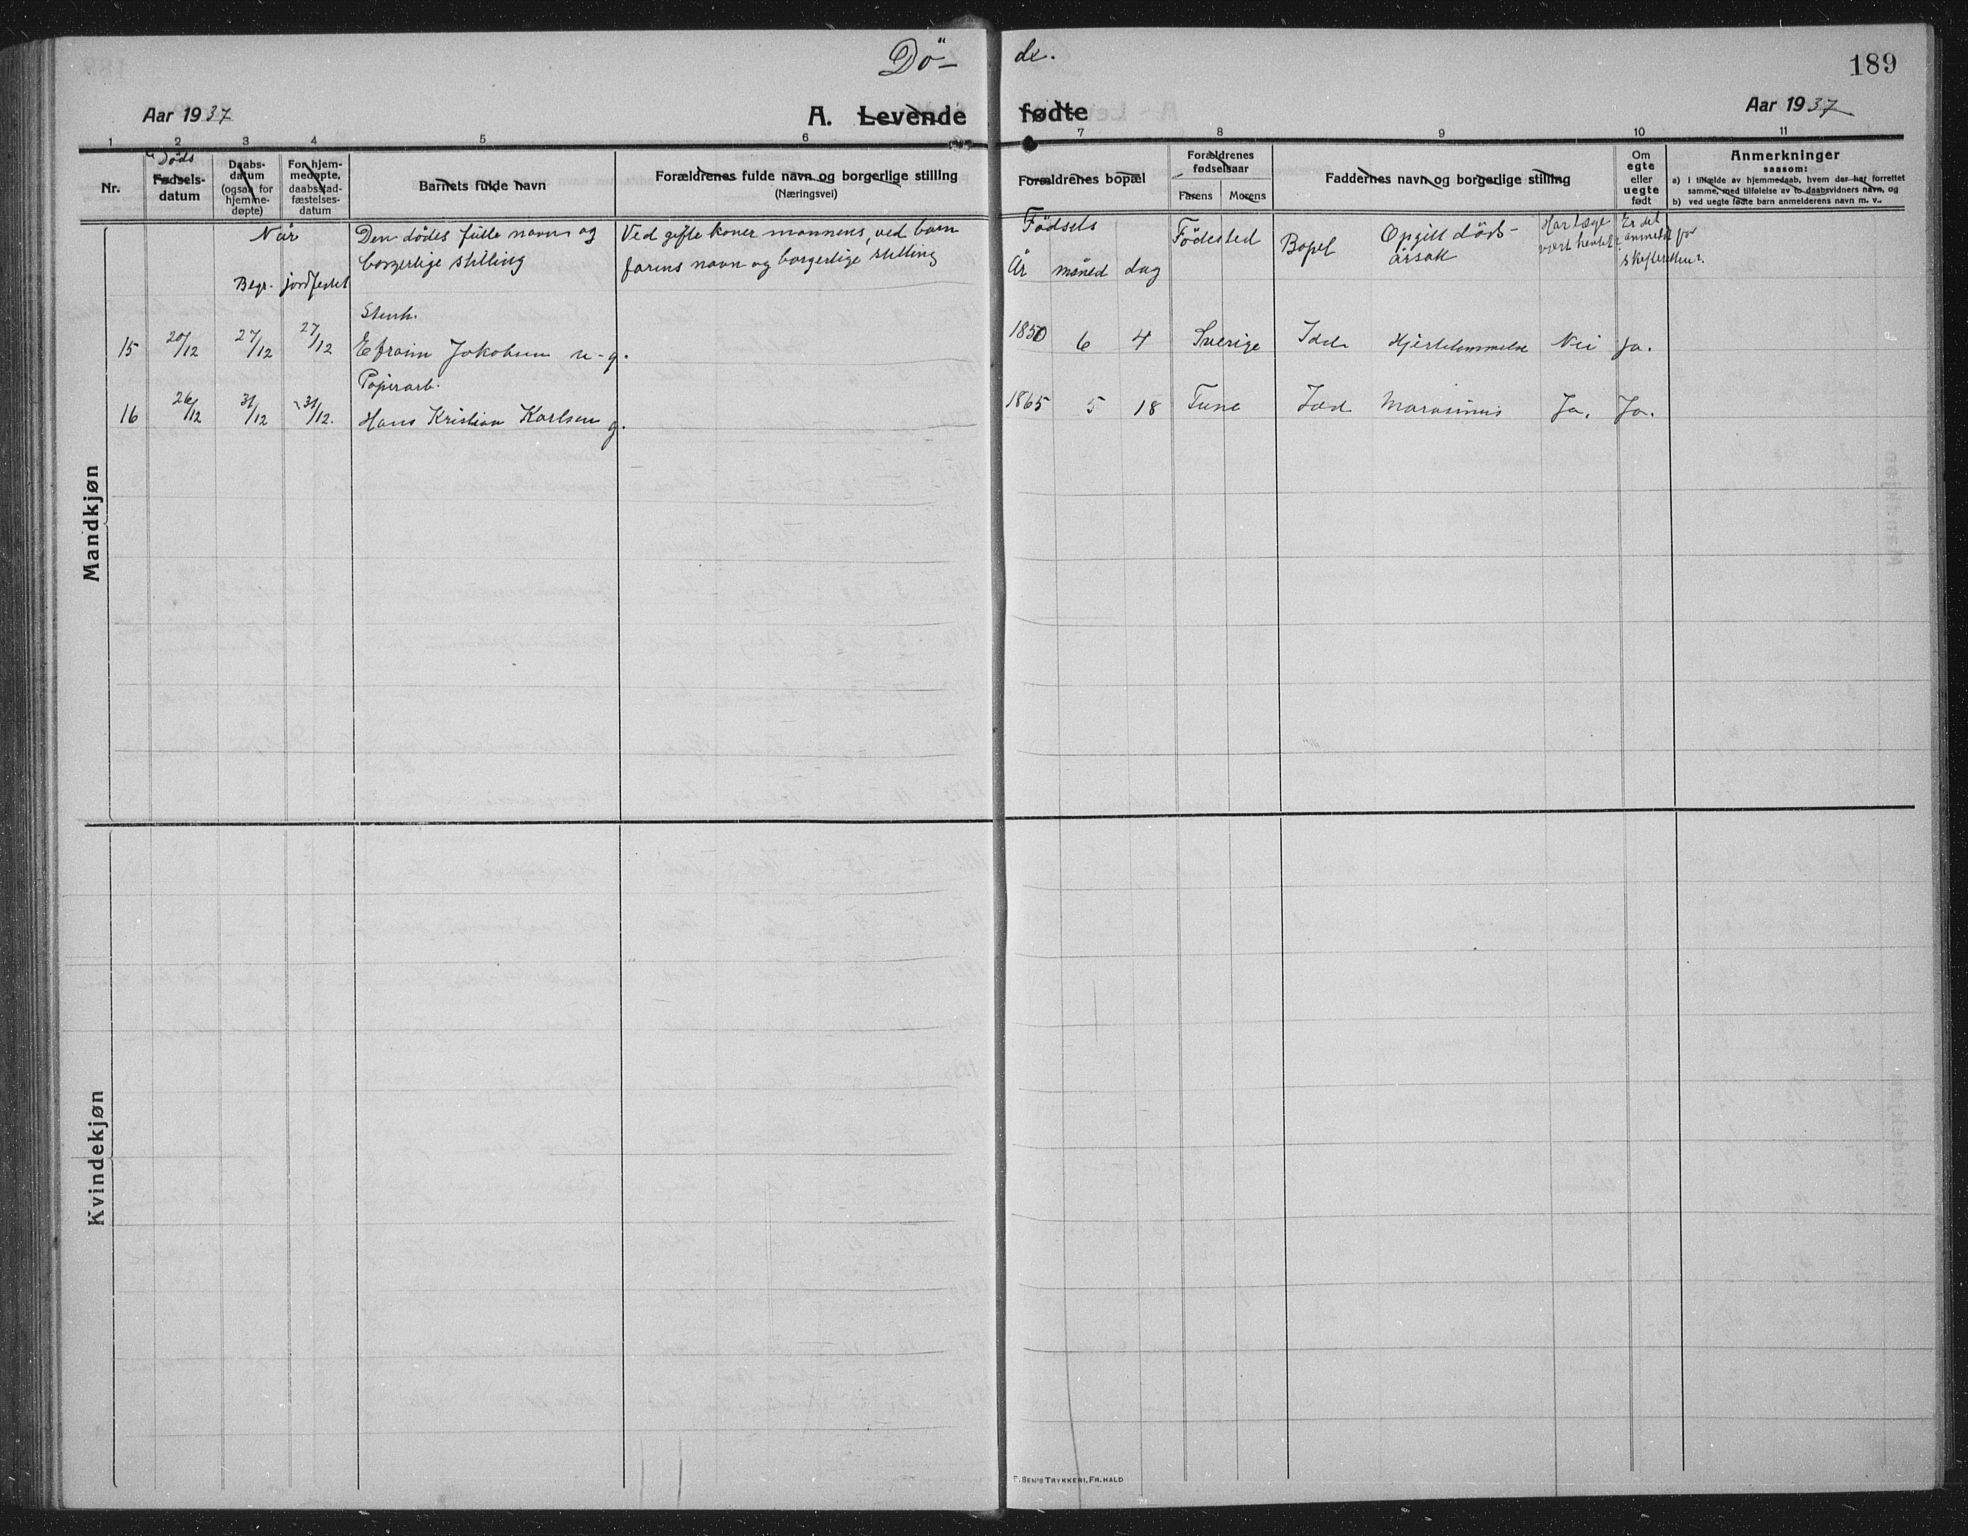 Dö- de.
189
Aar 1937
A. Levende fødte
Aar 1937
1 2 3 4 5 6 7 8 9 10 11
Nr.
Döds
Fødsels-
datum
Daabs-
datum
(ogsaa for
hjemme-
døpte)
For hjem-
medøpte,
daabsstad-
fæstelses-
datum
Barnets fulde navn
Forældrenes fulde navn og borgerlige stilling
(Næringsvei)
Forældrenes bopæl
Forældrenes
fødselsaar
Farens Morens
Faddernes navn og borgerlige stilling
Om
egte
eller
uegte
født
Anmerkninger
saasom:
a) I tilfælde av hjemmedaab, hvem der har forrettet
samme, med tilføielse av to daabsvidners navn, og
b) ved uegte fødte barn anmelderens navn m. v..
Når
Begr. jordfestet
Den dödes fulle navn og
borgerlige stilling
Ved gifte koner mannens, ved barn
farens navn og borgerlige stilling
Födsels
År måned dag
Födested
Bopel
Opgitt döds-
årsak
Har læge
vært hentet
Er det
anmeldt for
skifteretten.
Mandkjøn
Stenh.
15 20/12 27/12 27/12 Efraim Jakobsen u-g. 1850 6 4 Sverige Idd Hjertelammelse Nei Ja.
Papirarb.
16 26/12 31/12 31/12. Hans Kristian Karlsen g. 1865 5 18 Tune Idd Marasmus Ja. Ja.
Kvindekjøn
E. SEM'S TRYKKERI, FR.HALD